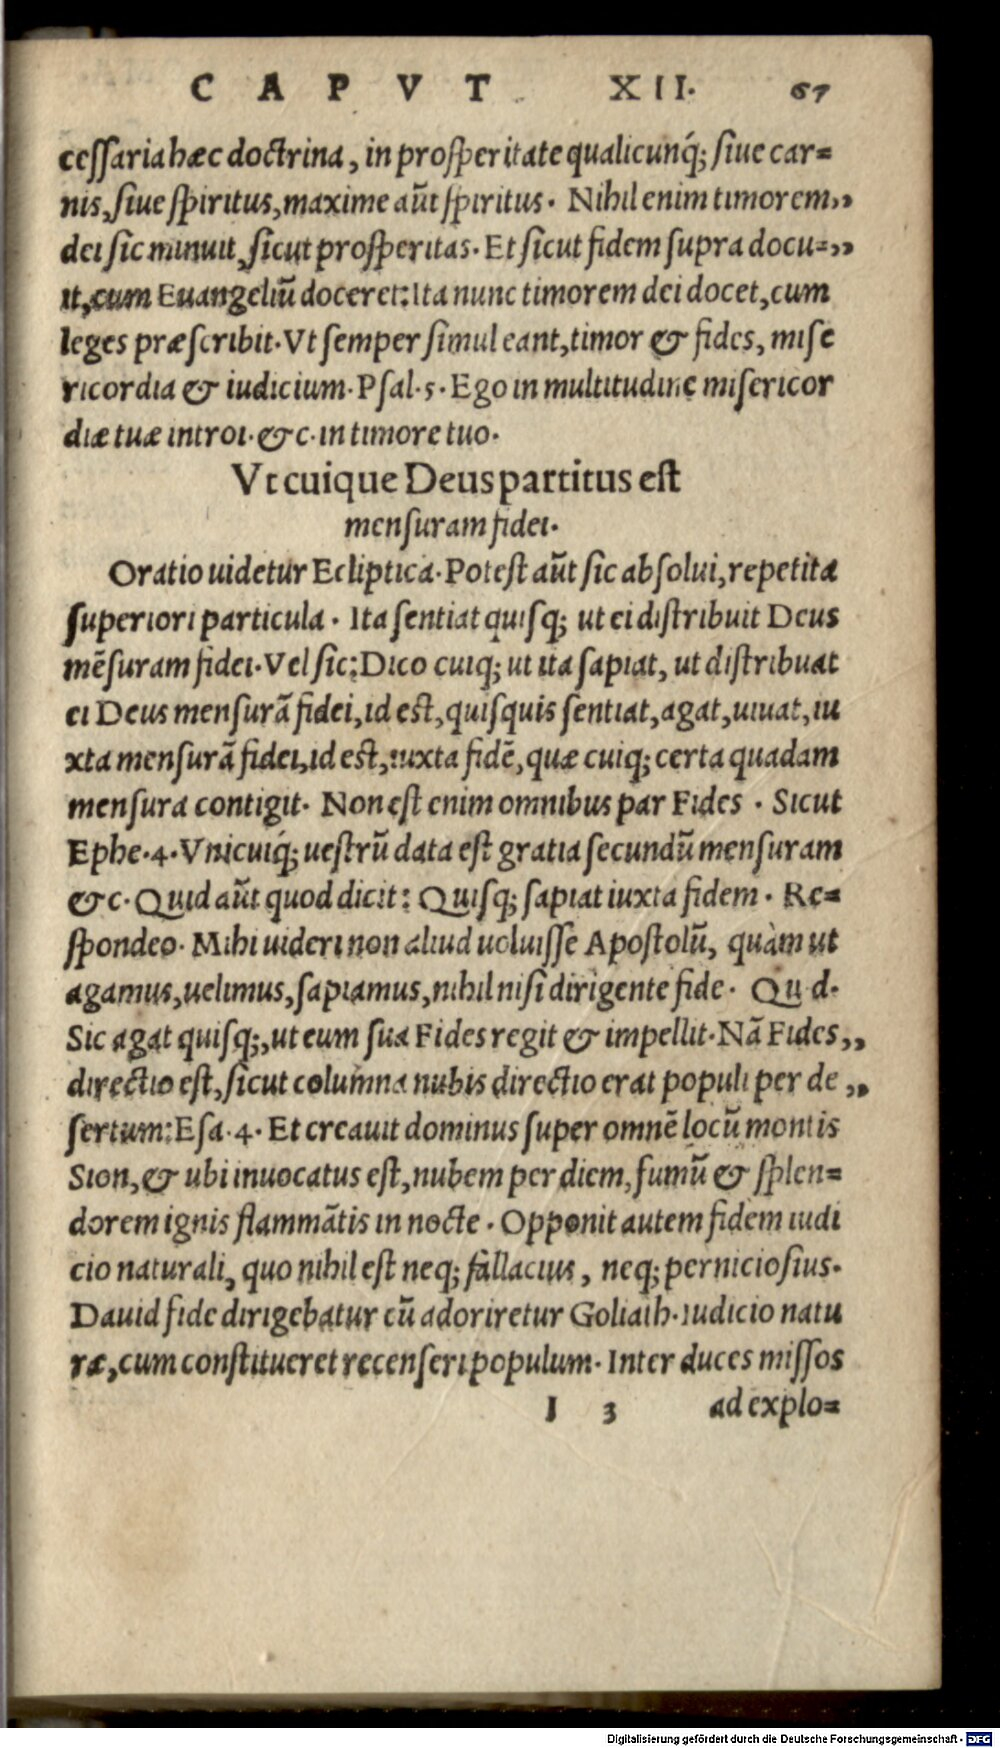 CAPVT XII. 67
cessaria hæc doctrina, in prosperitate qualicunq́; siue car=
nis, siue spiritus, maxime aūt spiritus. Nihil enim timorem,,
dei sic minuit, sicut prosperitas. Et sicut fidem supra docu=,,
it, cum Euangeliū doceret: Ita nunc timorem dei docet, cum
leges præscribit. Vt semper simul eant, timor & fides, mise
ricordia & iudicium. Psal. 5. Ego in multitudine misericor
diæ tuæ introi. &c. in timore tuo.
Vt cuique Deus partitus est
mensuram fidei.
Oratio uidetur Ecliptica. Potest aūt sic absolui, repetita
superiori particula. Ita sentiat quisq; ut ei distribuit Deus
mēsuram fidei. Vel sic: Dico cuiq; ut ita sapiat, ut distribuat
ei Deus mensurā fidei, id est, quisquis sentiat, agat, uiuat, iu
xta mensurā fidei, id est, iuxta fidē, quæ cuiq; certa quadam
mensura contigit. Non est enim omnibus par Fides. Sicut
Ephe. 4. Vnicuiq́; uestrū data est gratia secundū mensuram
&c. Quid aūt quod dicit: Quisq; sapiat iuxta fidem. Re=
spondeo. Mihi uideri non aliud uoluisse Apostolū, quàm ut
agamus, uelimus, sapiamus, nihil nisi dirigente fide. Qu d.
Sic agat quisq;, ut eum sua Fides regit & impellit. Nā Fides,,
directio est, sicut columna nubis directio erat populi per de,,
sertum: Esa. 4. Et creauit dominus super omnē locū montis
Sion, & ubi inuocatus est, nubem per diem, fumū & splen=
dorem ignis flammātis in nocte. Opponit autem fidem iudi
cio naturali, quo nihil est neq; fallacius, neq; perniciosius.
Dauid fide dirigebatur cū adoriretur Goliath. Iudicio natu
ræ, cum constitueret recenseri populum. Inter duces missos
I 3 ad explo=
Digitalisierung gefördert durch die Deutsche Forschungsgemeinschaft - DFG